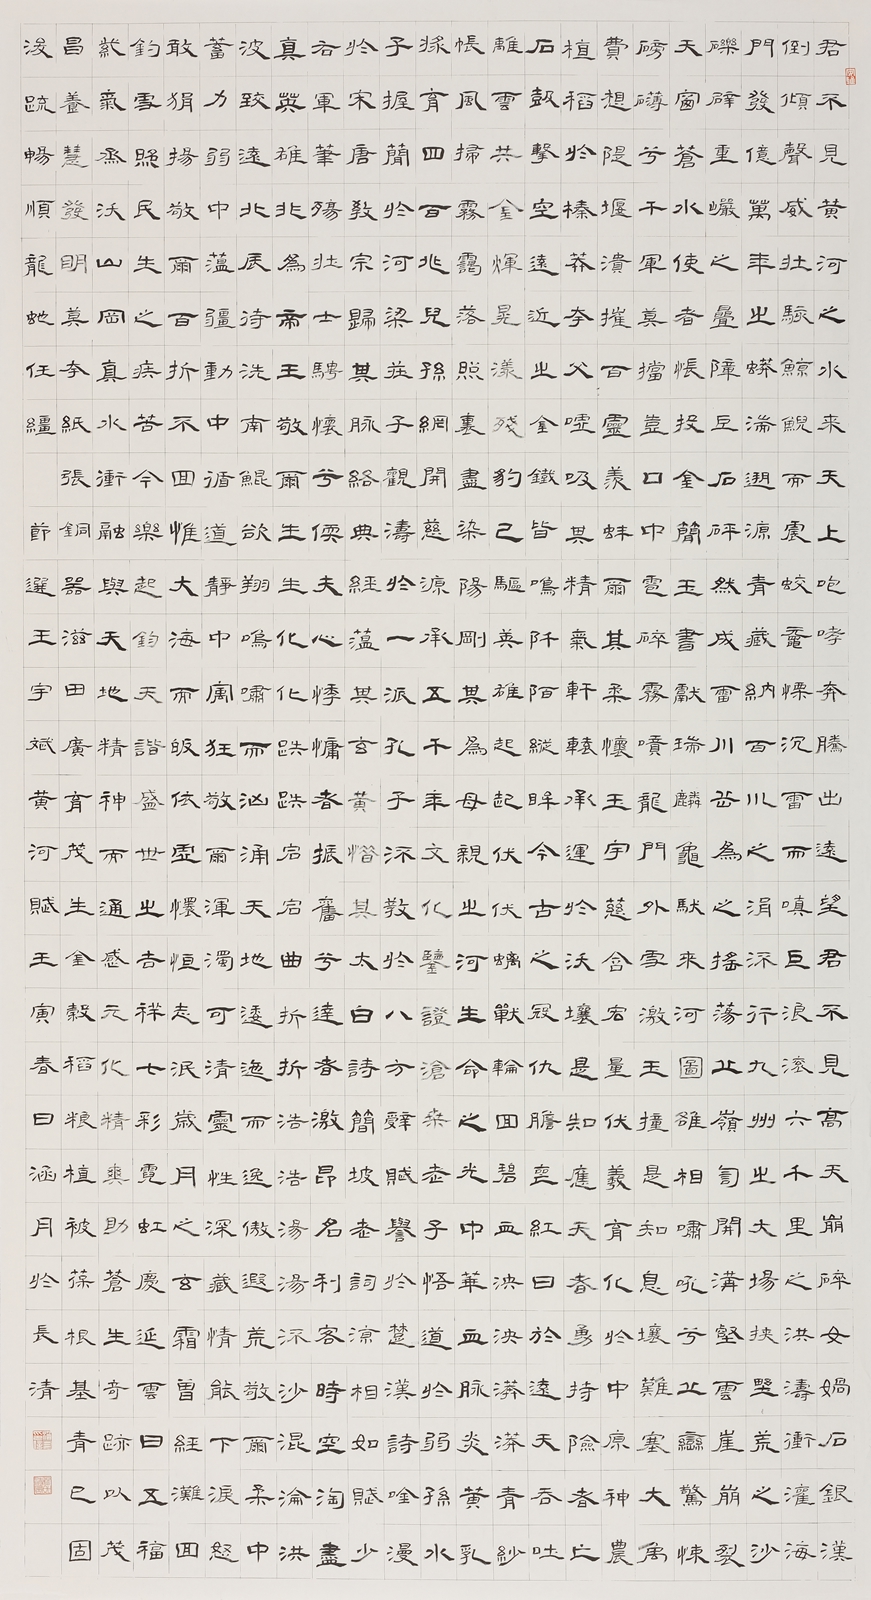 君不見黃河之水来天上咆哮奔騰出遠望君不見高天崩碎女媧石銀漢
倒傾聲威壮駭鯨鯢而震蛟鼉慄沉雷而嗔巨浪滚六千里之洪濤衝灌海
門發億萬年出蟒淵遡源青藏納百川之涓流行九州出大場挟墅荒之沙
礫礕重巘之疊障巨石砰然成雷川谷為之搖蕩止嶺訇開溝壑雲崖崩裂
天窗蒼水使者悵投金簡玉書獻瑞麟龜馱来河圖雒相嘯吼兮止巒驚悚
磅礡兮千軍莫擋豈口中雹碎霧噴龍門外雪激玉撞是知息壤難塞大禹
費想隄堰潰摧百靈羨蚌爾其柔懷玉宇慈含宏量伏羲育化於中原神農
植稻於榛莽夸父嘘吸其精氣軒轅承運於沃壤是知應天春勇持險者亡
石鼓擊空遠近出金鐵皆鳴阡陌縱眸今古之冠仇膽壑紅日於遠天吞吐
離雲共金煇晃漾殘豹己驅英雄起起伏伏螭戰輪回碧血泱泱漭漭青紗
帳風掃霧靄落照裏盡染陽剛其為母親出河生命之光中華血脉炎黃乳
育四百兆兒孫網開慈源承五千年文化鑒證滄桑老子悟道於弱孫水
子握簡於河梁莊子觀濤於一派孔子流教於八方辭賦譽於楚漢詩唫漫
於宋唐教宗歸其脉絡典經蘊其玄黃熠其太白詩簡坡老詞凉相如賦少
右軍筆殤壮士騁懷兮儒夫心悸慵者振奮兮達者激昂名利客時空淘盡
真英雄非為帝王敬爾生生化化跌跌宕宕曲折折浩浩湯湯流沙混淪洪
波致遠北辰待洗南鯤欲翔鳴嘯而洶涌天地逶迤而逸傲遐荒敬爾柔中
蓄力弱中蘊疆動中循道静中寓狂敬爾渾濁可清靈性深藏情能下淚怒
敢狷揚敬爾百折不回惟大海而皈依虛懷恒志泯歲月之玄霜曾經灘回
釣雪照民生之疾苦今樂起鈞天諧盛世出吉祥七彩霓虹慶延雲日五福
氣烝沃山岡真水衝融與天地精神而通感元化精爽助蒼生奇跡以茂
昌養慧發明莫夸紙張銅器滋田廣育茂生金穀稻粮植被葆根基青已固
浚疏暢順龍虵任繮 節選王宇斌黃河賦壬寅春日涵月於長清